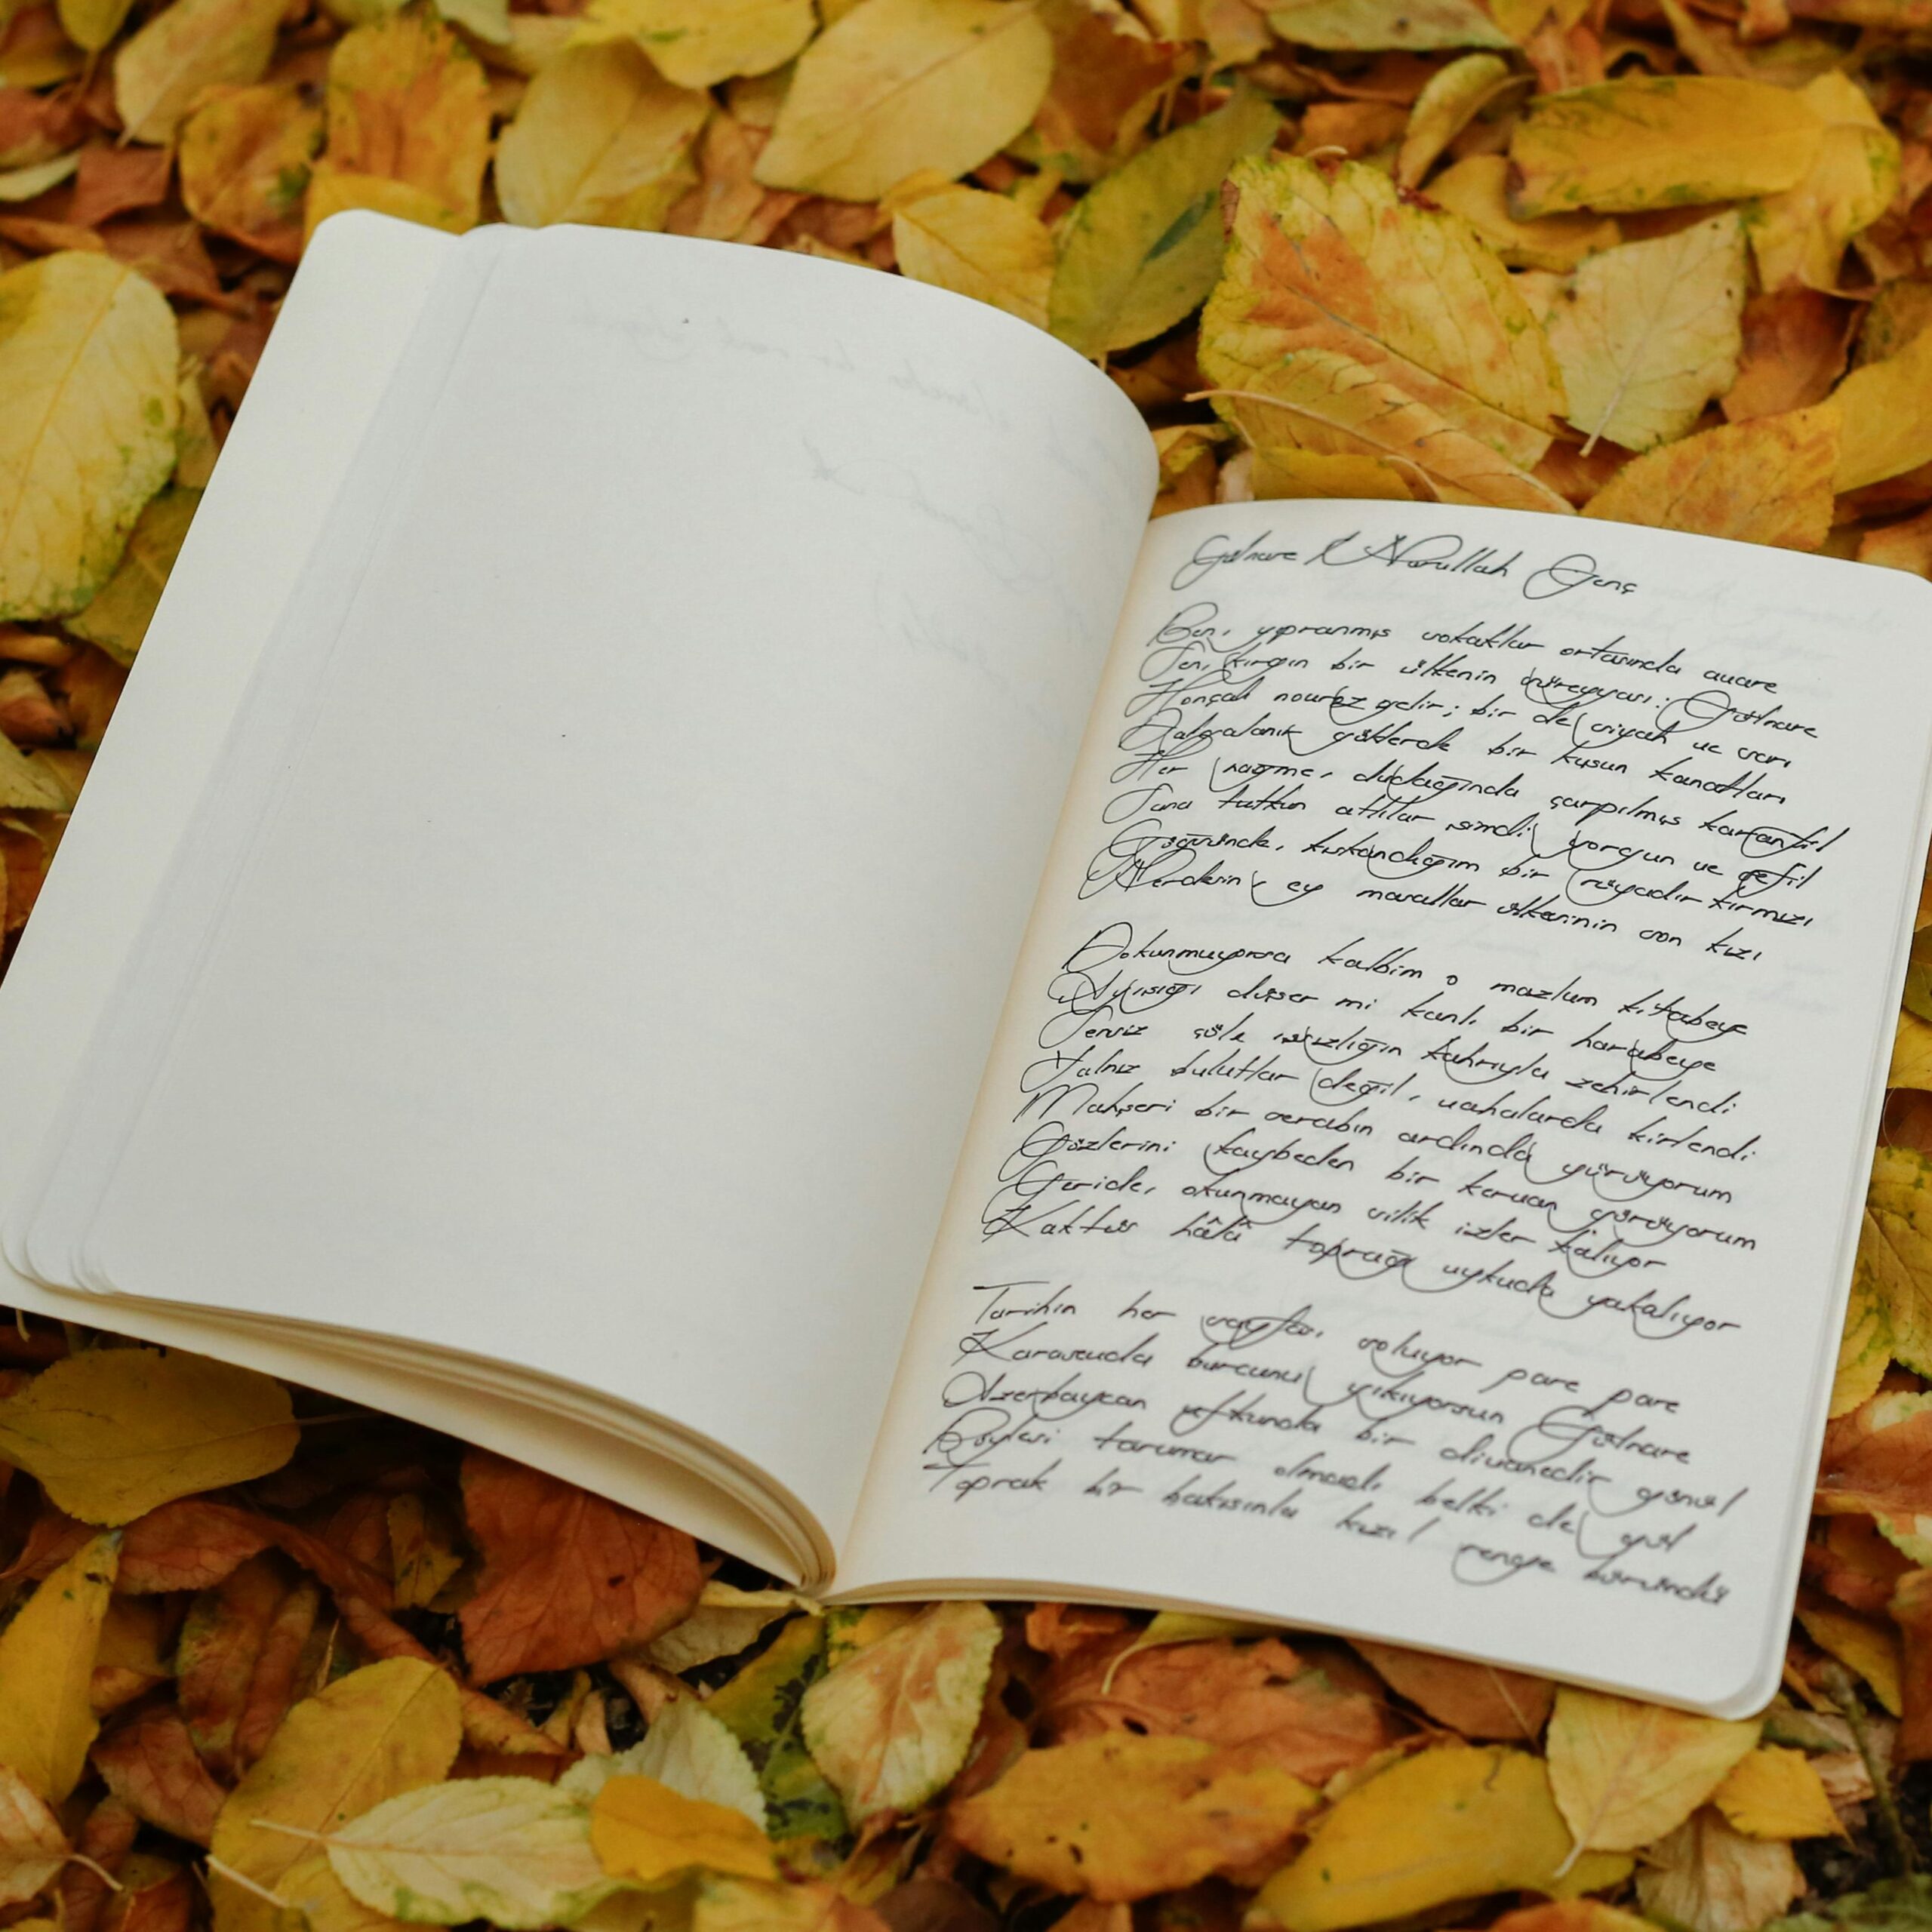 Gülnare / Nurullah Genç
Ben, yıpranmış sokaklar ortasında avare
Sen, kırgın bir ülkenin süreyyası: Gülnare
Honçalı novruz gelir; bir de siyah ve sarı
Dalgalanır göklerde bir kuşun kanatları
Her nağme, dudağında çarpılmış karanfil
Sana tutkun atlılar şimdi yorgun ve sefil
Göğsünde, kıskandığım bir rüyadır kırmızı
Nerdesin, ey marallar ülkesinin son kızı
Dokunmuyorsa kalbim o mazlum kitabeye
Ayışığı düşer mi kanlı bir harabeye
Sensiz çöle ıssızlığın kahrıyla zehirlendi
Yalnız bulutlar değil, vahalarda kirlendi
Mahşeri bir serabın ardında yürüyorum
Gözlerini kaybeden bir kervan görüyorum
Geride, okunmayan silik izler kalıyor
Kaktüs hâlâ toprağı uykuda yakalıyor
Tarihin her sayfası soluyor pare pare
Karasevda burcunu yıkıyorsun Gülnare
Azerbaycan ufkunda bir divanedir gönül
Böylesi tarumar olmadı belki de gül
Toprak bir bakışınla kızıl renge büründü